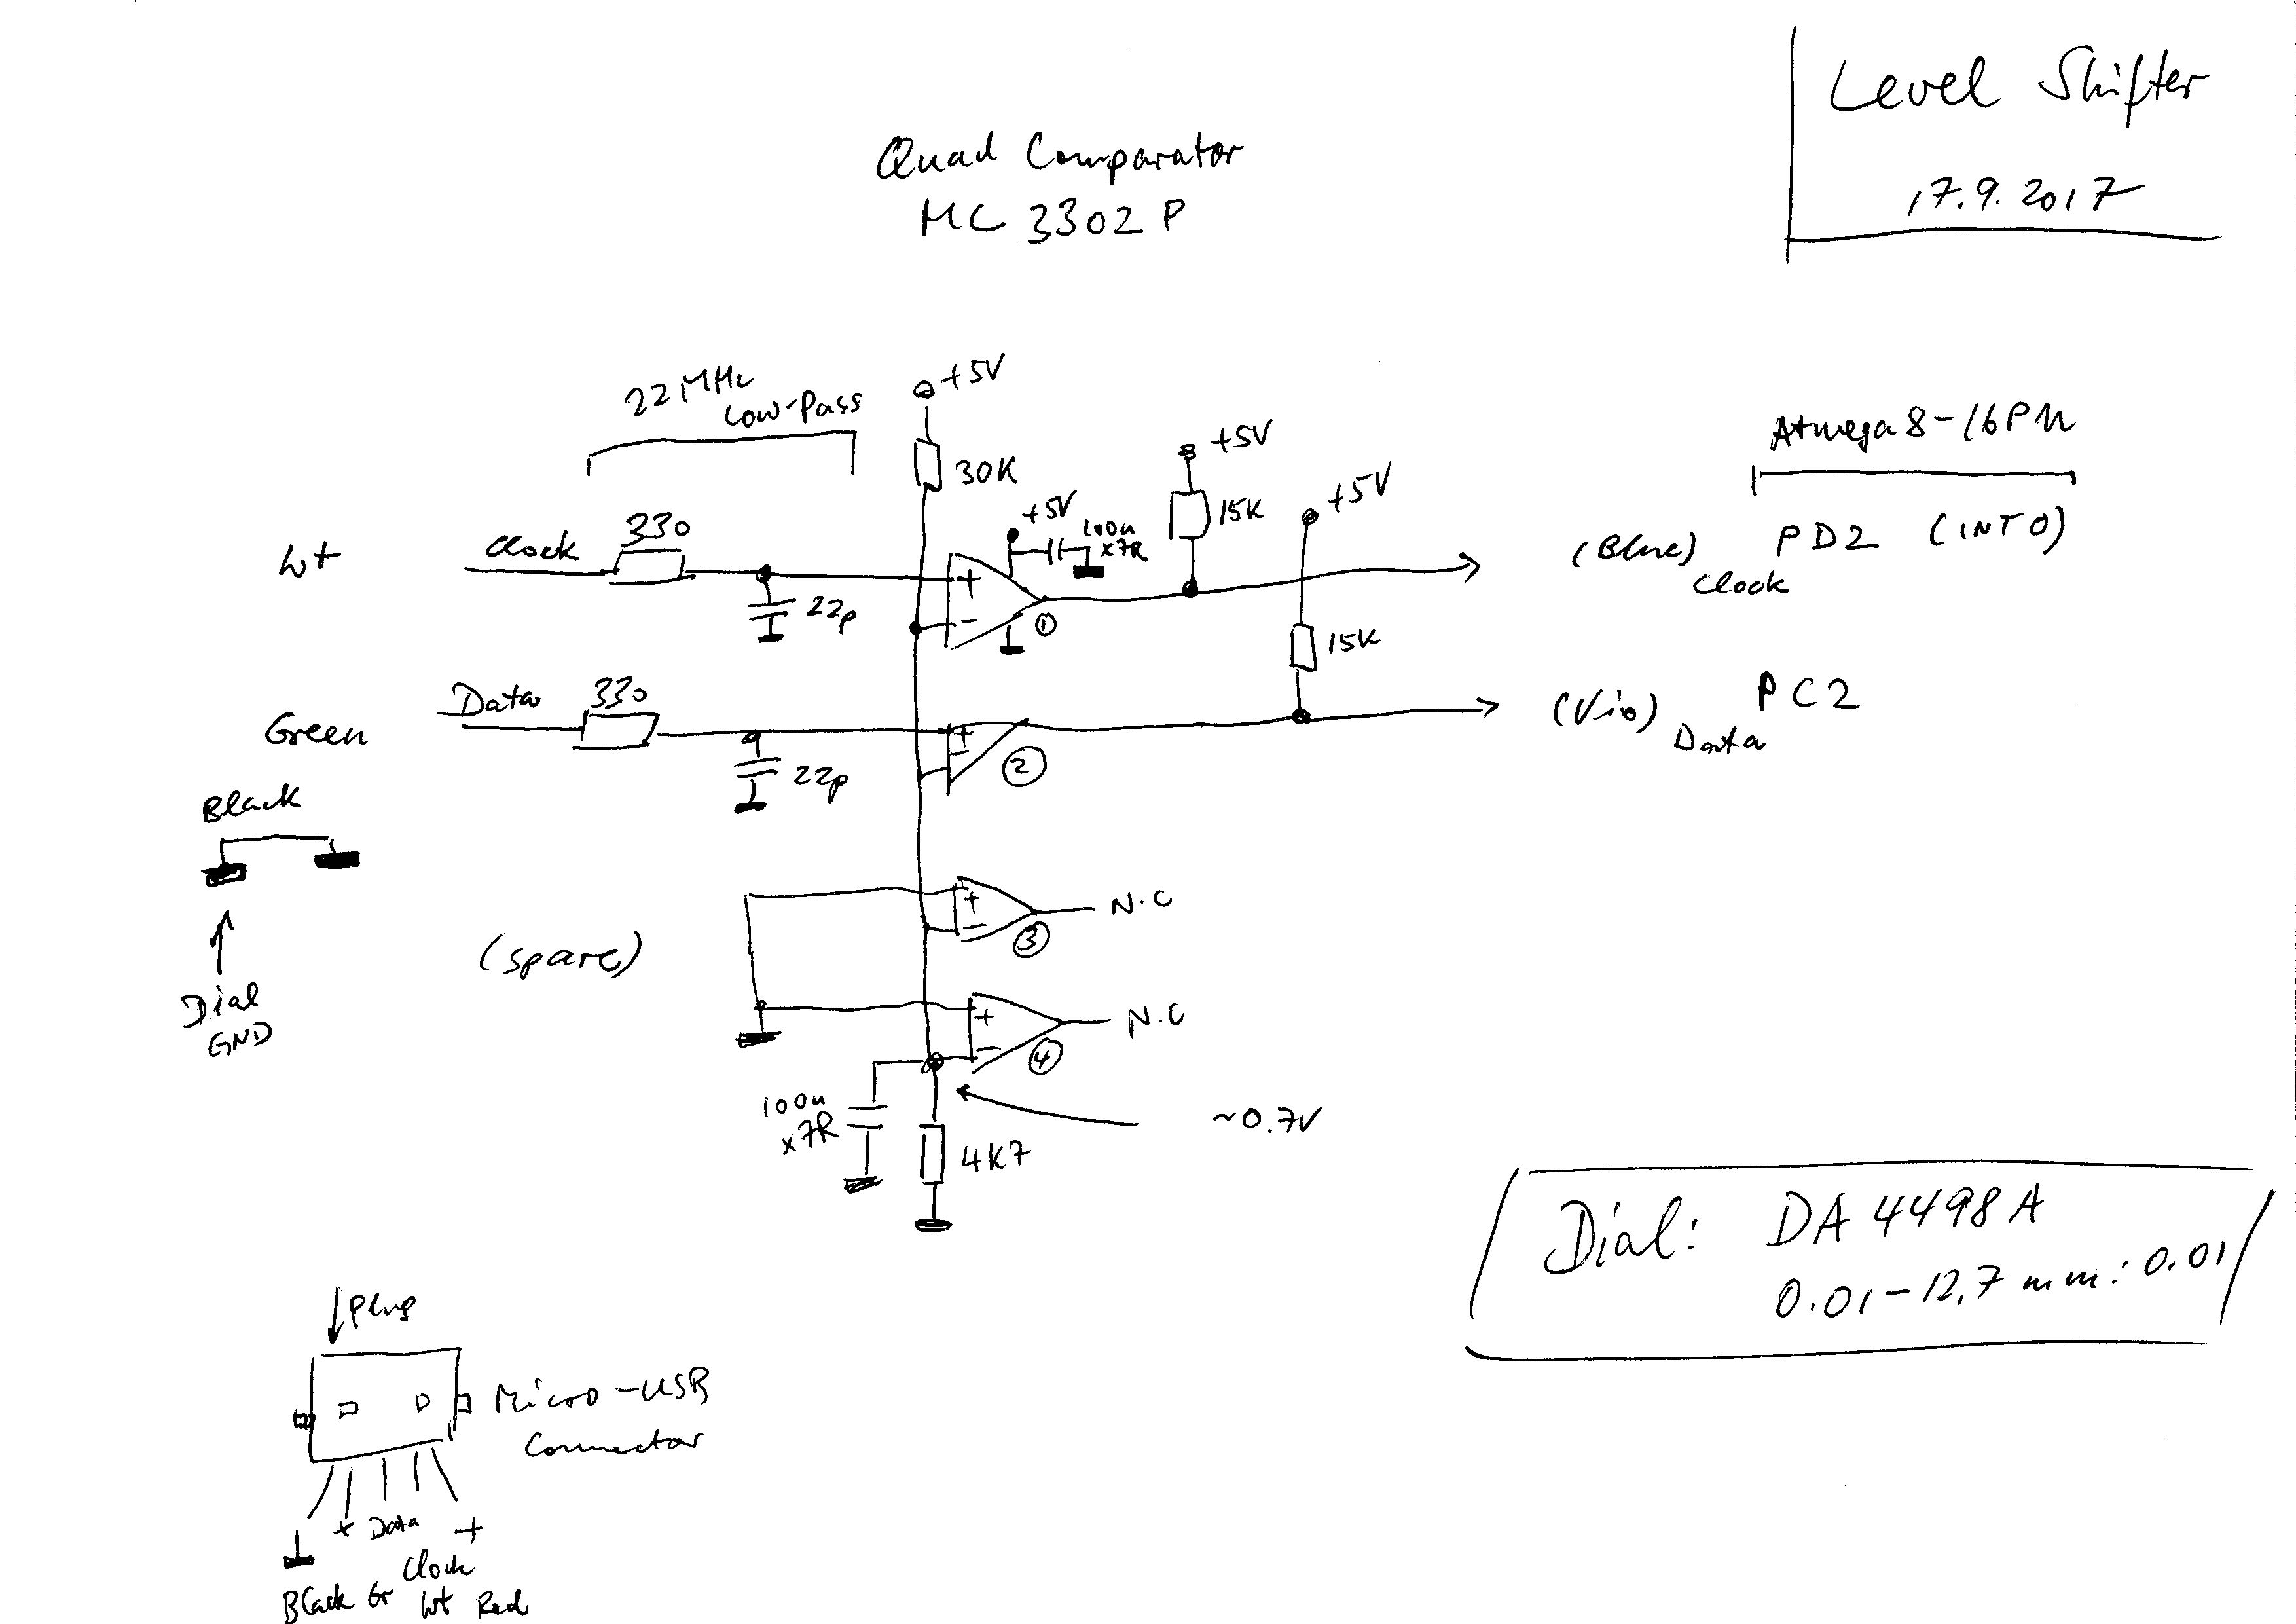 Level Shifter
17.9.2017
Quad Comparator
MC 3302 P
22 MHz
Low-Pass
+5V
30K
+5V
100n
x7R
+5V
15K
+5V
Atmega8-16PU
wt
Clock
330
22p
+
-
1
(Blue)
Clock
PD2 (INT0)
15K
Green
Data
330
22p
+
-
2
(Vio)
Data
PC2
Black
Dial
GND
(spare)
+
-
3
N.C
+
-
4
N.C
100n
x7R
4K7
~0.7V
Dial: DA 4498 A
0.01-12,7 mm: 0.01
Plug
Micro-USB
Connector
x Data +
Clock
Black Gr wt Red